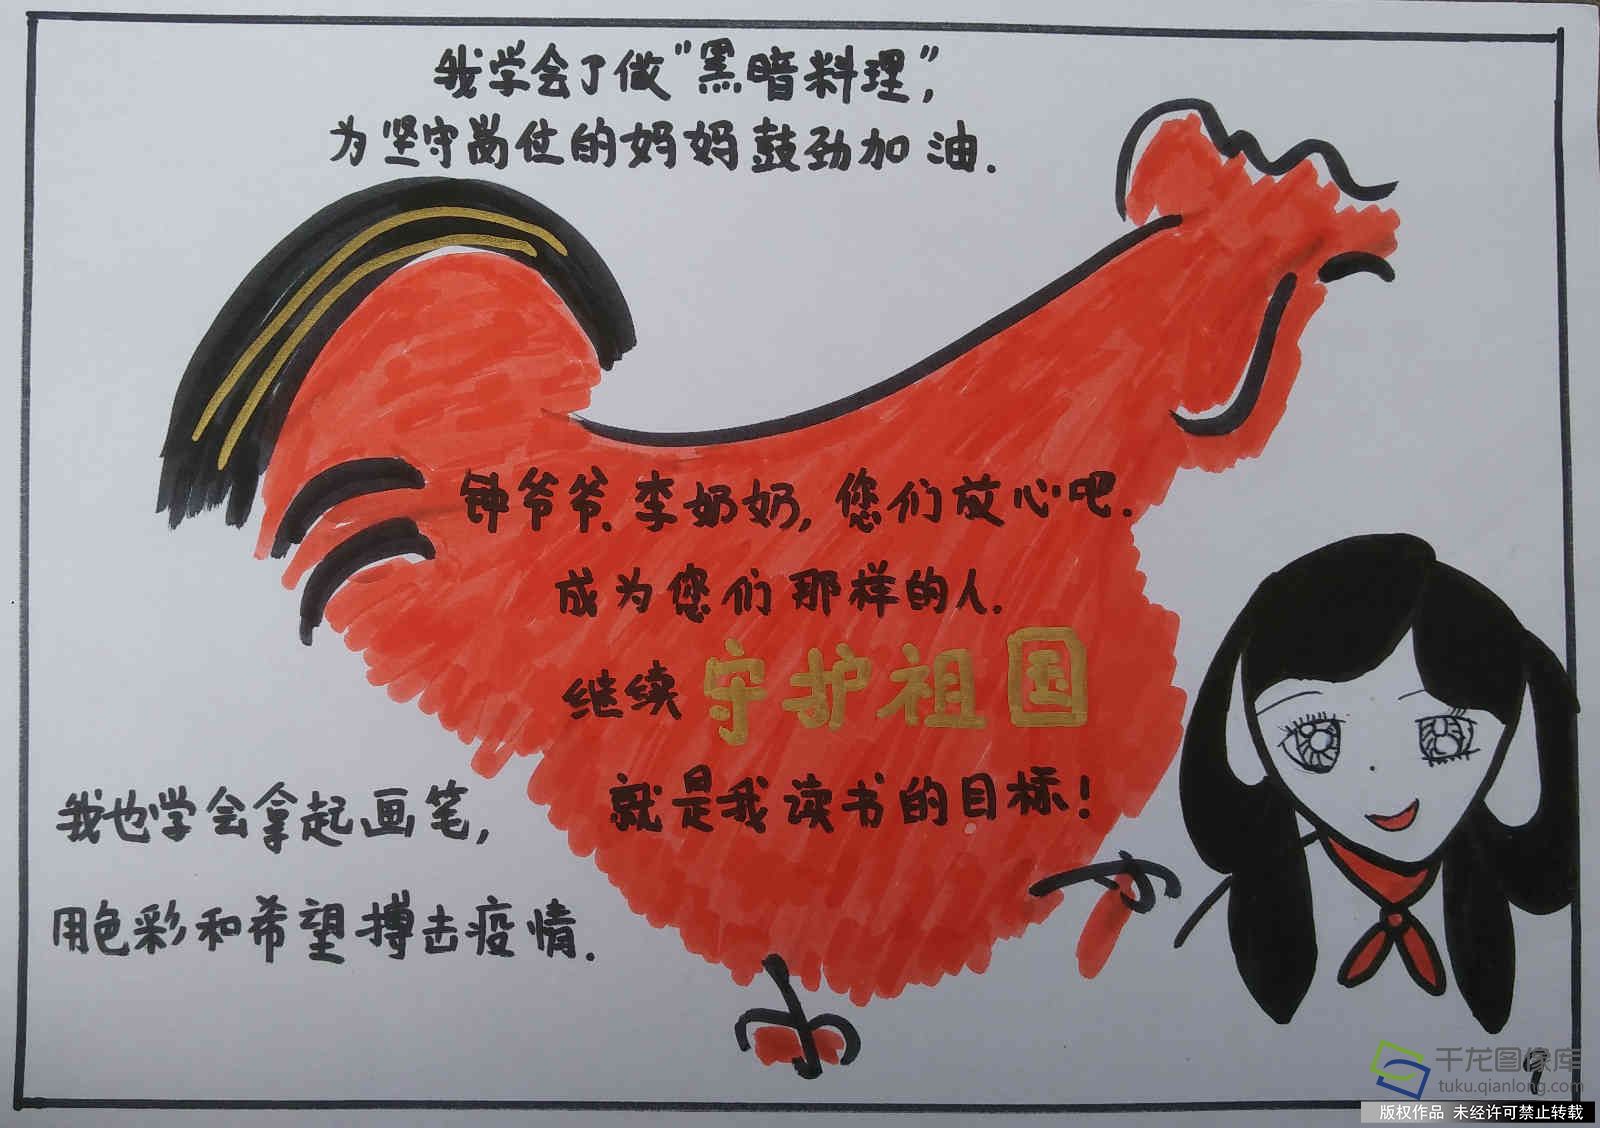 我学会了做“黑暗料理”,
为坚守岗位的妈妈鼓劲加油.
钟爷爷、李奶奶,您们放心吧.
成为您们那样的人.
继续守护祖国
就是我读书的目标!
我也学会拿起画笔,
用色彩和希望搏击疫情.
9
千龙图像库
tuku.qianlong.com
版权作品 未经许可禁止转载